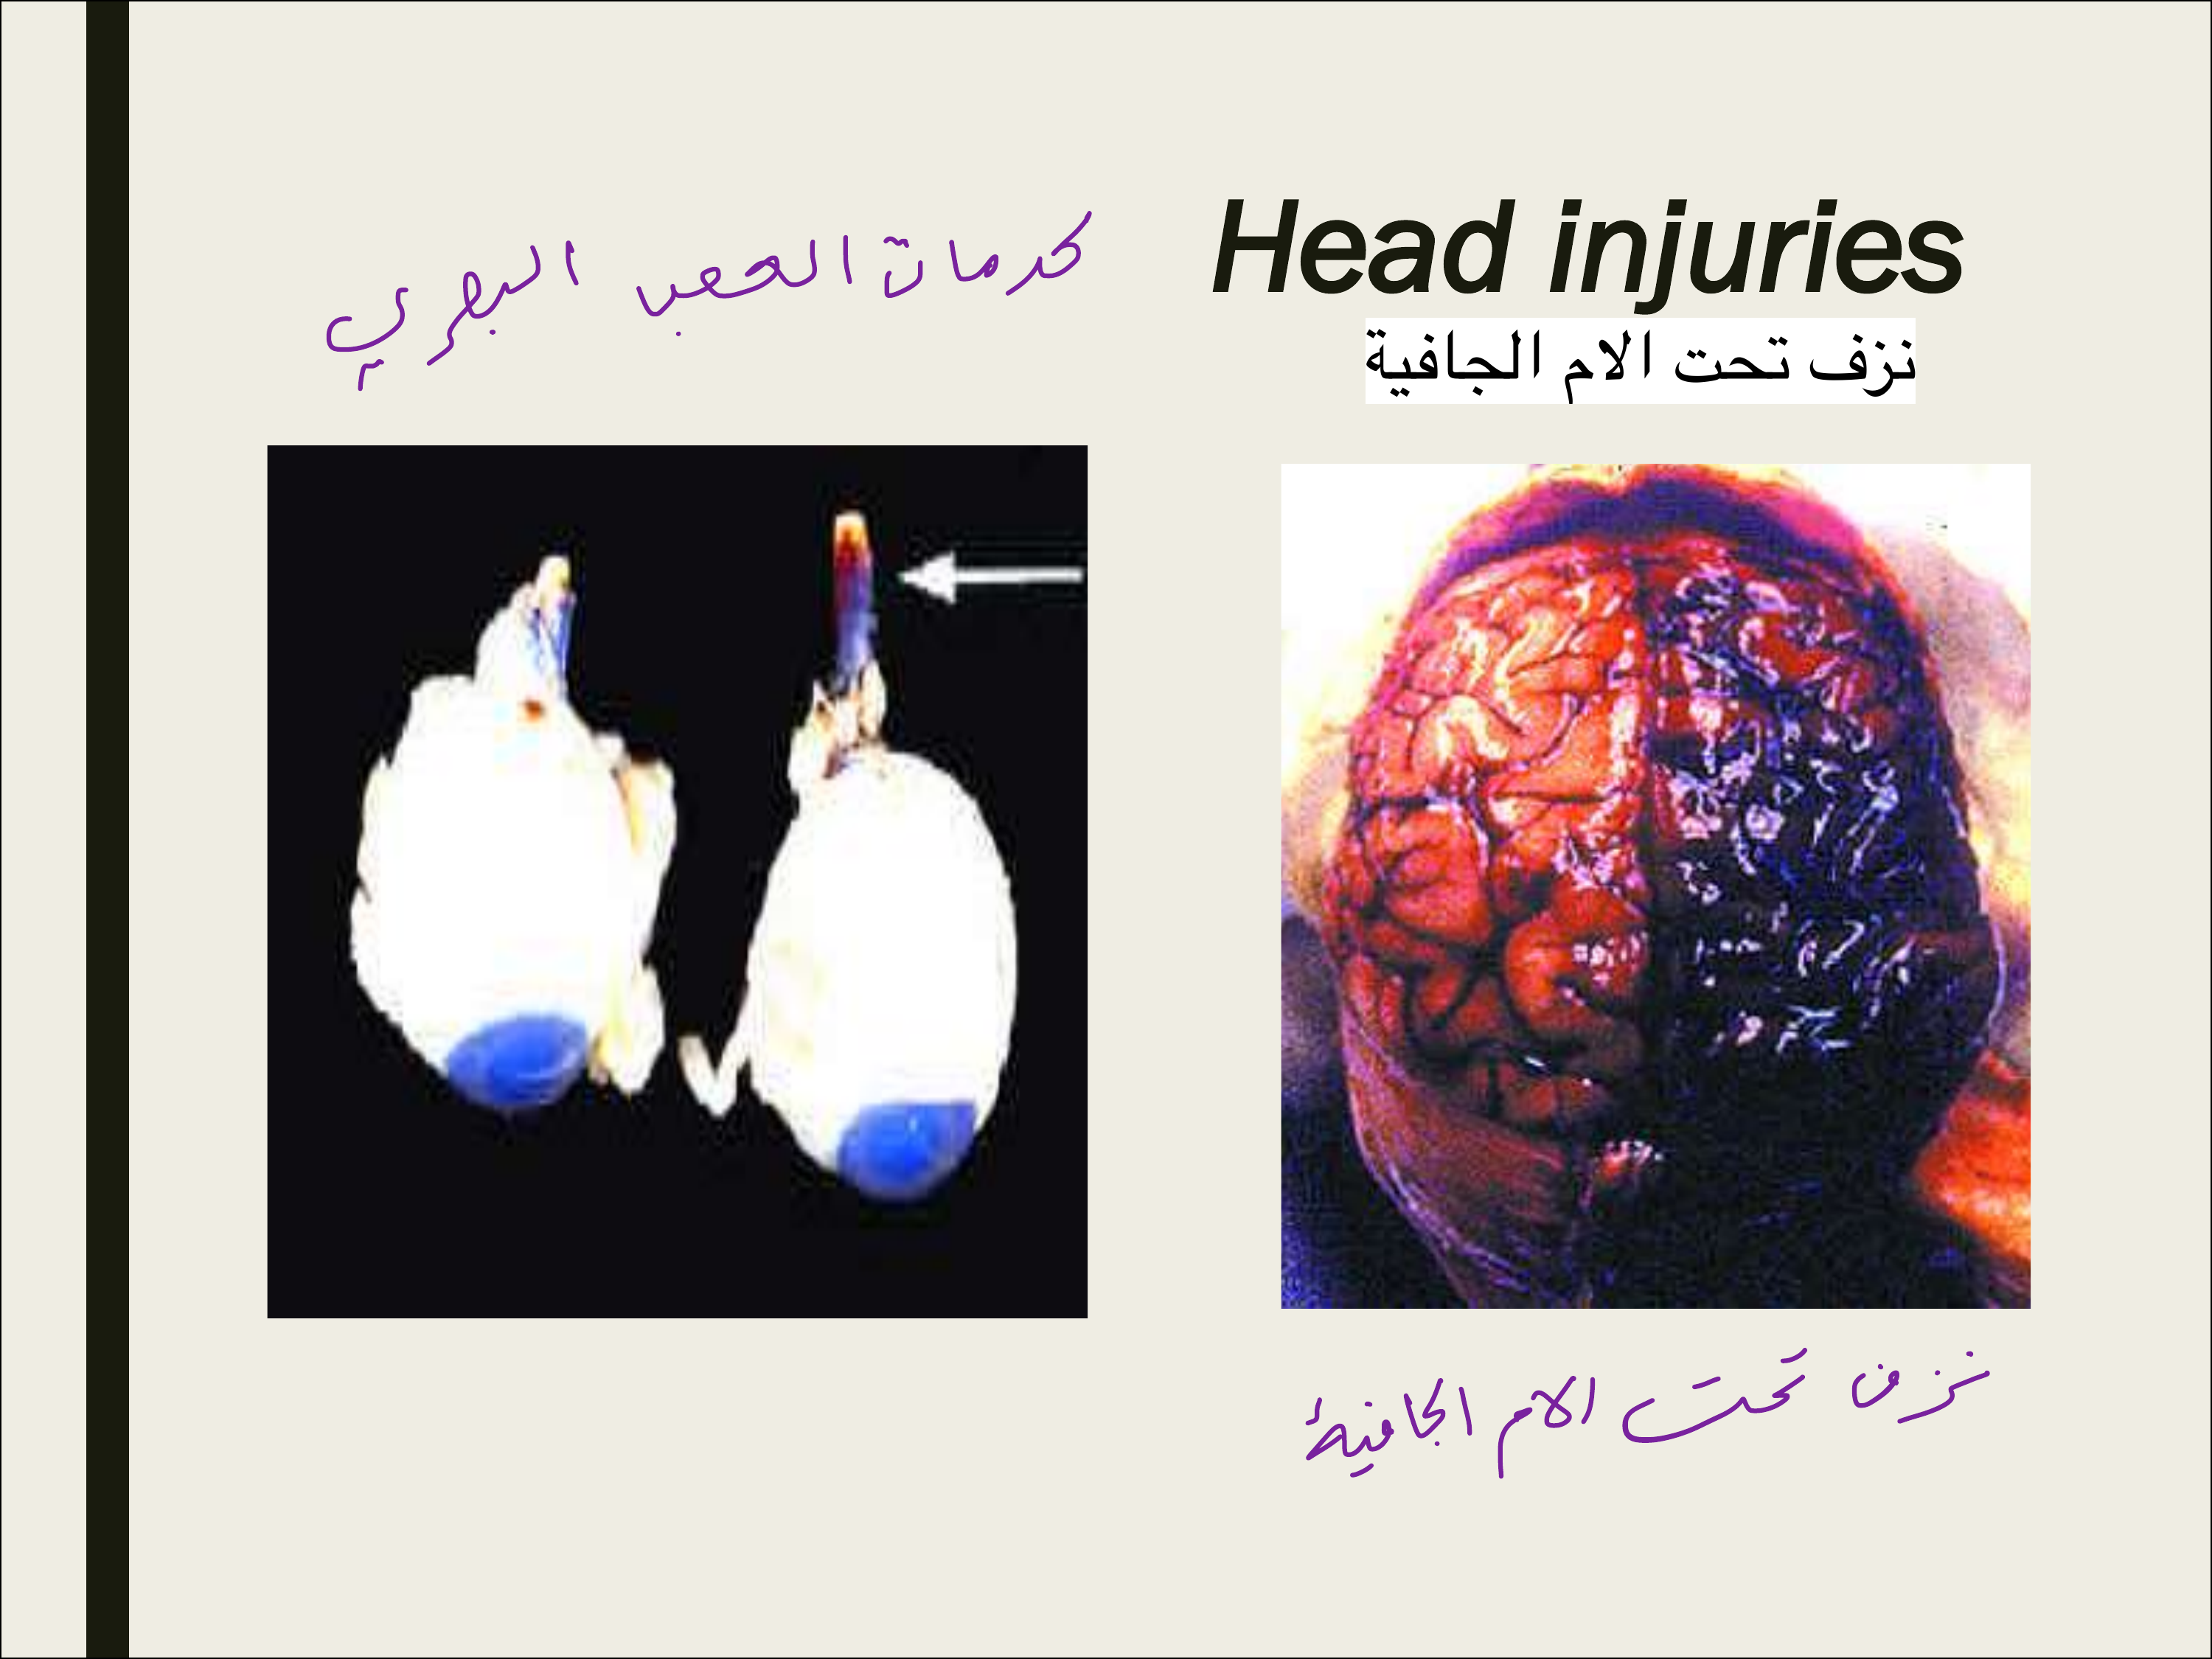 Head injuries
نزف تحت الام الجافية
كدمات العصب البصري
نزف تحت الام الجافية